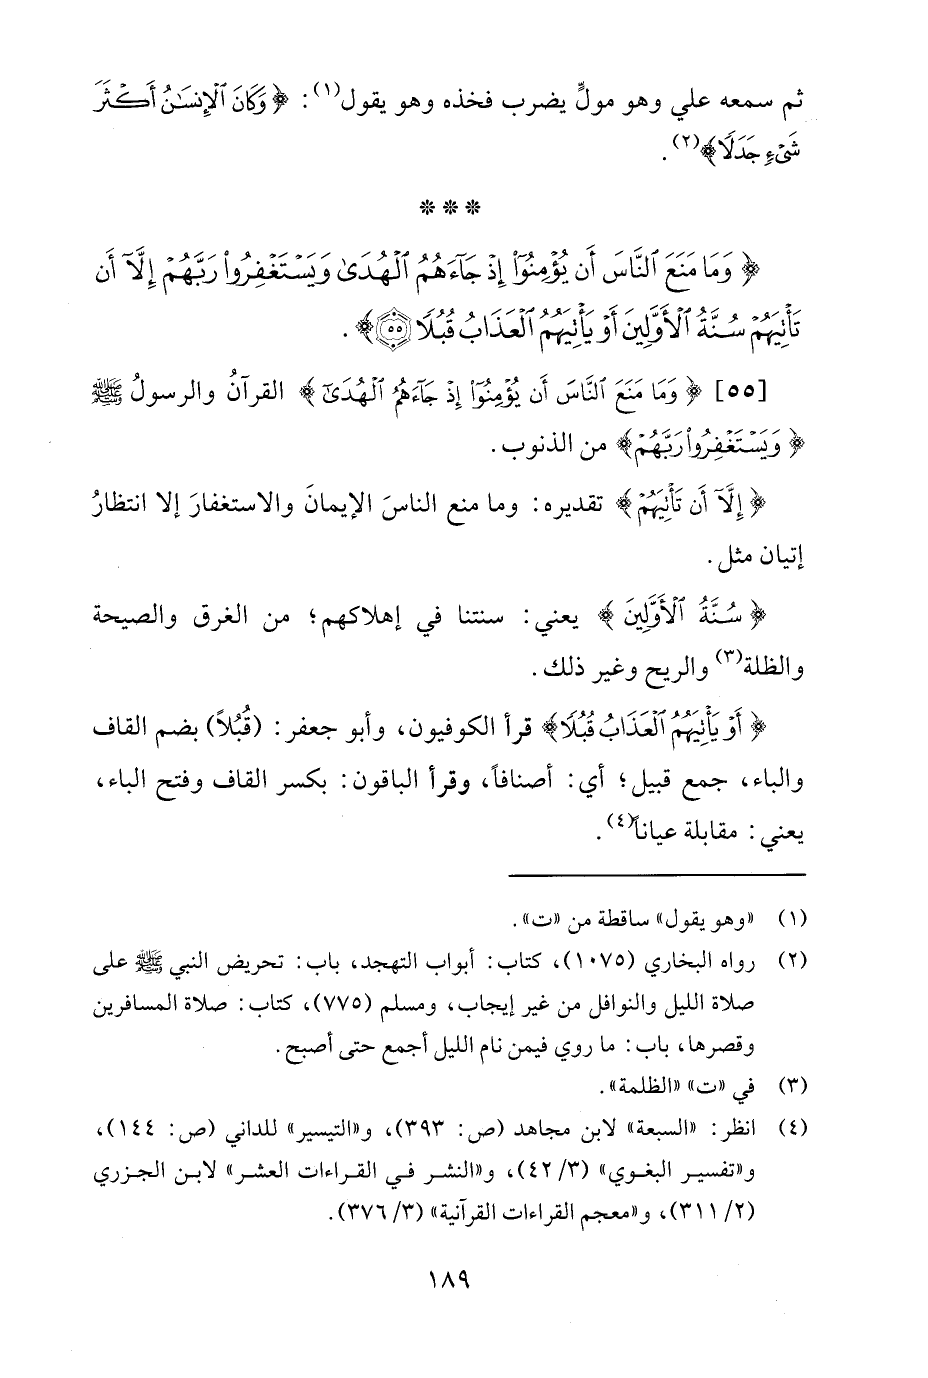 ثم سمعه علي وهو مولٍّ يضرب فخذه وهو يقول(١): ﴿وَكَانَ ٱلْإِنسَٰنُ أَكْثَرَ
شَىْءٍ جَدَلًا﴾(٢).
* * *
﴿وَمَا مَنَعَ ٱلنَّاسَ أَن يُؤْمِنُوٓا۟ إِذْ جَآءَهُمُ ٱلْهُدَىٰ وَيَسْتَغْفِرُوا۟ رَبَّهُمْ إِلَّآ أَن
تَأْتِيَهُمْ سُنَّةُ ٱلْأَوَّلِينَ أَوْ يَأْتِيَهُمُ ٱلْعَذَابُ قُبُلًا ٥٥﴾.
[٥٥] ﴿وَمَا مَنَعَ ٱلنَّاسَ أَن يُؤْمِنُوٓا۟ إِذْ جَآءَهُمُ ٱلْهُدَىٰٓ﴾ القرآنُ والرسولُ ﷺ
﴿وَيَسْتَغْفِرُوا۟ رَبَّهُمْ﴾ من الذنوب.
﴿إِلَّآ أَن تَأْتِيَهُمْ﴾ تقديره: وما منع الناسَ الإيمانَ والاستغفارَ إلا انتظارُ
إتيان مثل.
﴿سُنَّةُ ٱلْأَوَّلِينَ﴾ يعني: سنتنا في إهلاكهم؛ من الغرق والصيحة
والظلة(٣) والريح وغير ذلك.
﴿أَوْ يَأْتِيَهُمُ ٱلْعَذَابُ قُبُلًا﴾ قرأ الكوفيون، وأبو جعفر: (قُبُلاً) بضم القاف
والباء، جمع قبيل؛ أي: أصنافاً، وقرأ الباقون: بكسر القاف وفتح الباء،
يعني: مقابلة عياناً(٤).
(١) «وهو يقول» ساقطة من «ت».
(٢) رواه البخاري (١٠٧٥)، كتاب: أبواب التهجد، باب: تحريض النبي ﷺ على
صلاة الليل والنوافل من غير إيجاب، ومسلم (٧٧٥)، كتاب: صلاة المسافرين
وقصرها، باب: ما روي فيمن نام الليل أجمع حتى أصبح.
(٣) في «ت» «الظلمة».
(٤) انظر: «السبعة» لابن مجاهد (ص: ٣٩٣)، و«التيسير» للداني (ص: ١٤٤)،
و«تفسير البغوي» (٣/ ٤٢)، و«النشر في القراءات العشر» لابن الجزري
(٢/ ٣١١)، و«معجم القراءات القرآنية» (٣/ ٣٧٦).
١٨٩